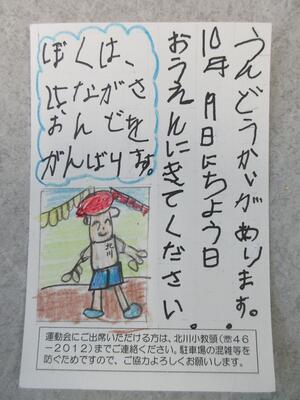 うんどうかいがあります。
10月9日にちよう日
おうえんにきてください。
ぼくは、
はながさ
おんどを
がんばります。
北川
運動会にご出席いただける方は、北川小教頭(☎46
−2012)までご連絡ください。駐車場の混雑等を
防ぐためですので、ご協力よろしくお願いします。